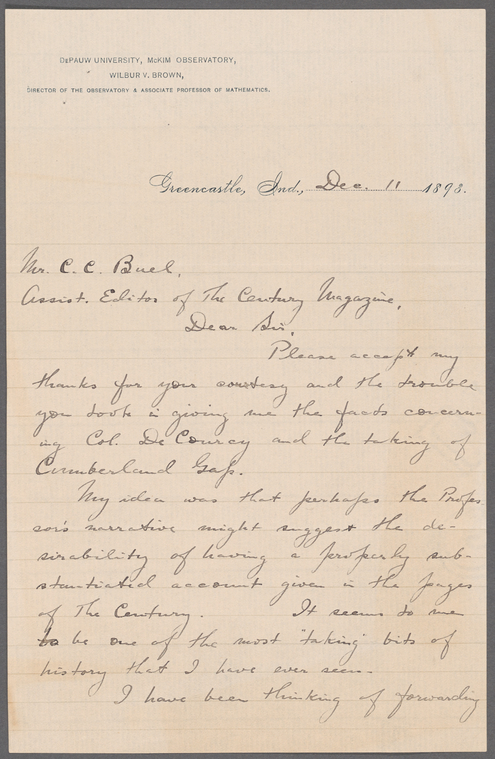 DEPAUW UNIVERSITY, McKIM OBSERVATORY,
WILBUR V. BROWN,
DIRECTOR OF THE OBSERVATORY & ASSOCIATE PROFESSOR OF MATHEMATICS.
Greencastle, Ind., Dec. 11 1893.
Mr. C. C. Buel,
Assist. Editor of The Century Magazine,
Dear Sir,
Please accept my
thanks for your courtesy and the trouble
you took in giving me the facts concern-
ing Col. De Courcy and the taking of
Cumberland Gap.
My idea was that perhaps the Profes-
sor's narrative might suggest the de-
sirability of having a properly sub-
stantiated account given in the pages
of The Century. It seems to me
to be one of the most "taking" bits of
history that I have ever seen.
I have been thinking of forwarding